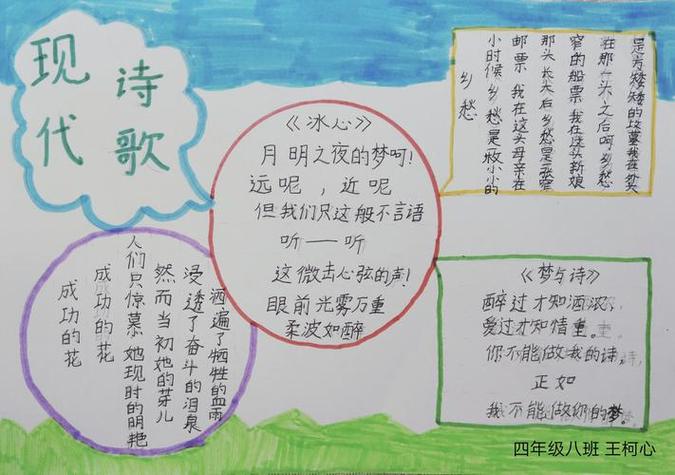 现代
诗歌
《冰心》
月明之夜的梦呵!
远呢,近呢
但我们只这般不言语
听——听
这微击心弦的声!
眼前光雾万重
柔波如醉
乡愁
小时候 乡愁是一枚小小的
邮票 我在这头母亲在
那头 长大后 乡愁是张窄
窄的船票 我在这头新娘
在那一头 之后呵 乡愁
是方矮矮的坟墓我在外头
成功的花
成功的花
人们只惊慕她现时的明艳
然而当初她的芽儿
浸透了奋斗的泪泉
洒遍了牺牲的血雨
《梦与诗》
醉过才知酒浓,
爱过才知情重。
你不能做我的诗,
正如
我不能做你的梦。
四年级八班 王柯心